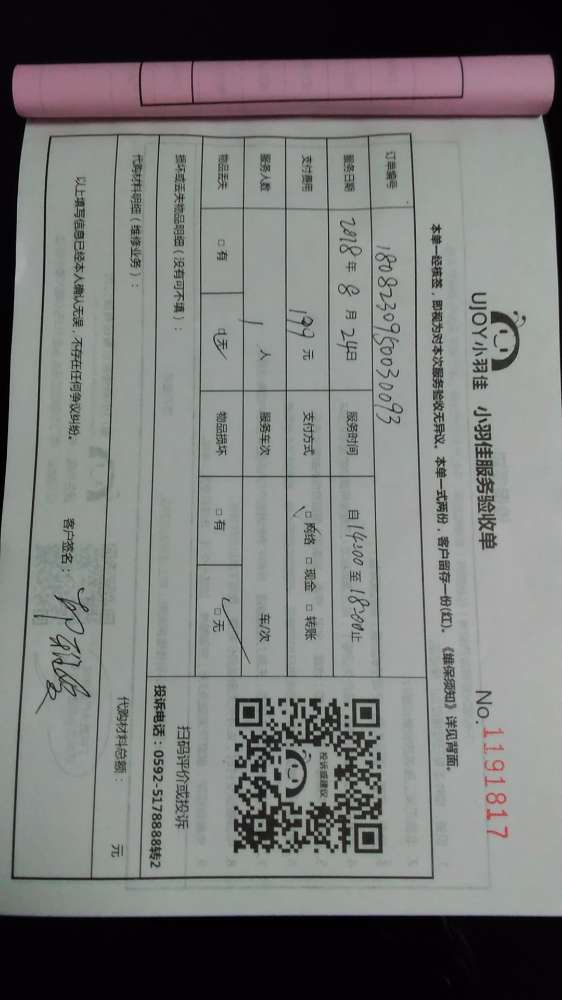 UJOY小羽佳 小羽佳服务验收单
No. 1191817
本单一经核签，即视为对本次服务验收无异议。本单一式两份，客户留存一份(红)。《维保须知》详见背面。
订单编号 1808230950030093
服务日期 2018年 8 月 24日 服务时间 自 14:00 至 18:00止
支付费用 199 元 支付方式 □网络 □现金 □转账
服务人数 1 人 服务车次 车/次
物品丢失 □有 □无 物品损坏 □有 □无
损坏或丢失物品明细（没有可不填）：
投诉或建议
扫码评价或投诉
投诉电话：0592-5178888转2
代购材料明细（维修业务）：
代购材料总额： 元
以上填写信息已经本人确认无误，不存在任何争议纠纷。 客户签名：